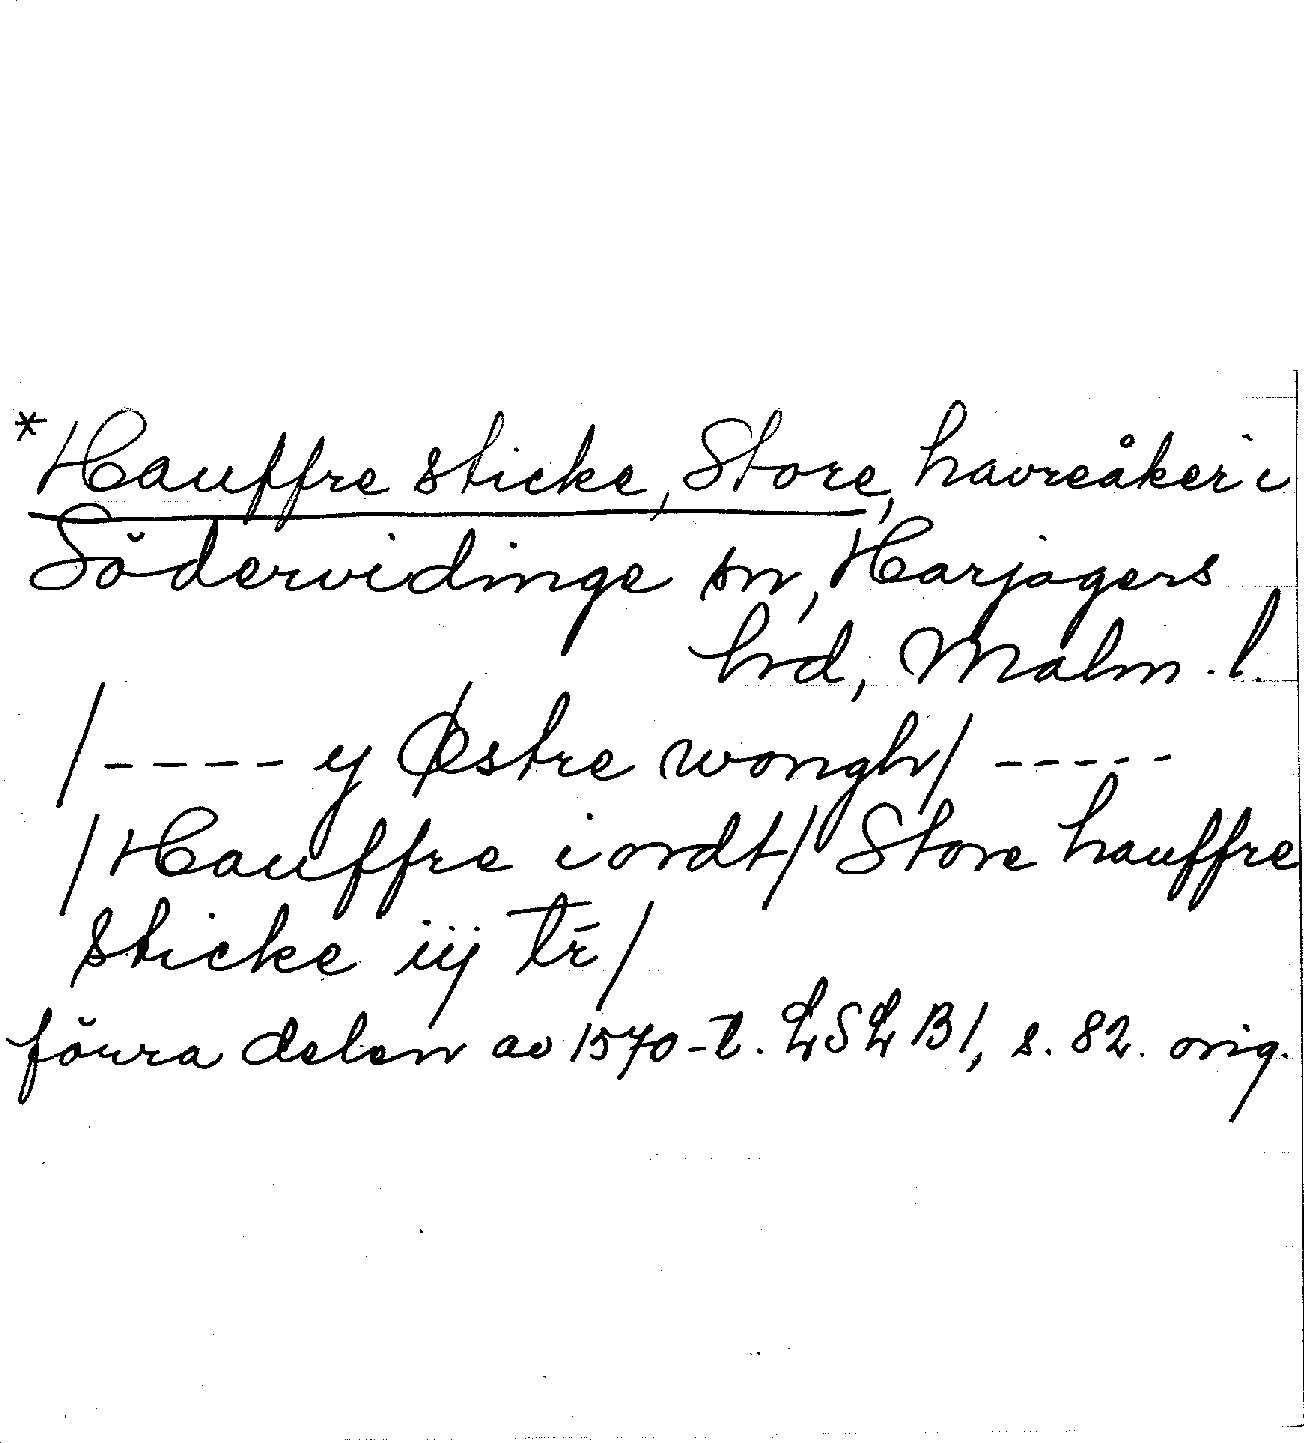 *Hauffre sticke, Store, havreåker i
Södervidinge sn, Harjagers
hrd, Malm. l.
/---- y Østre wongh/ -----
/Hauffre iordt/ Store hauffre
sticke iij tr/
förra delen av 1570-t. LSL B1, s. 82. orig.